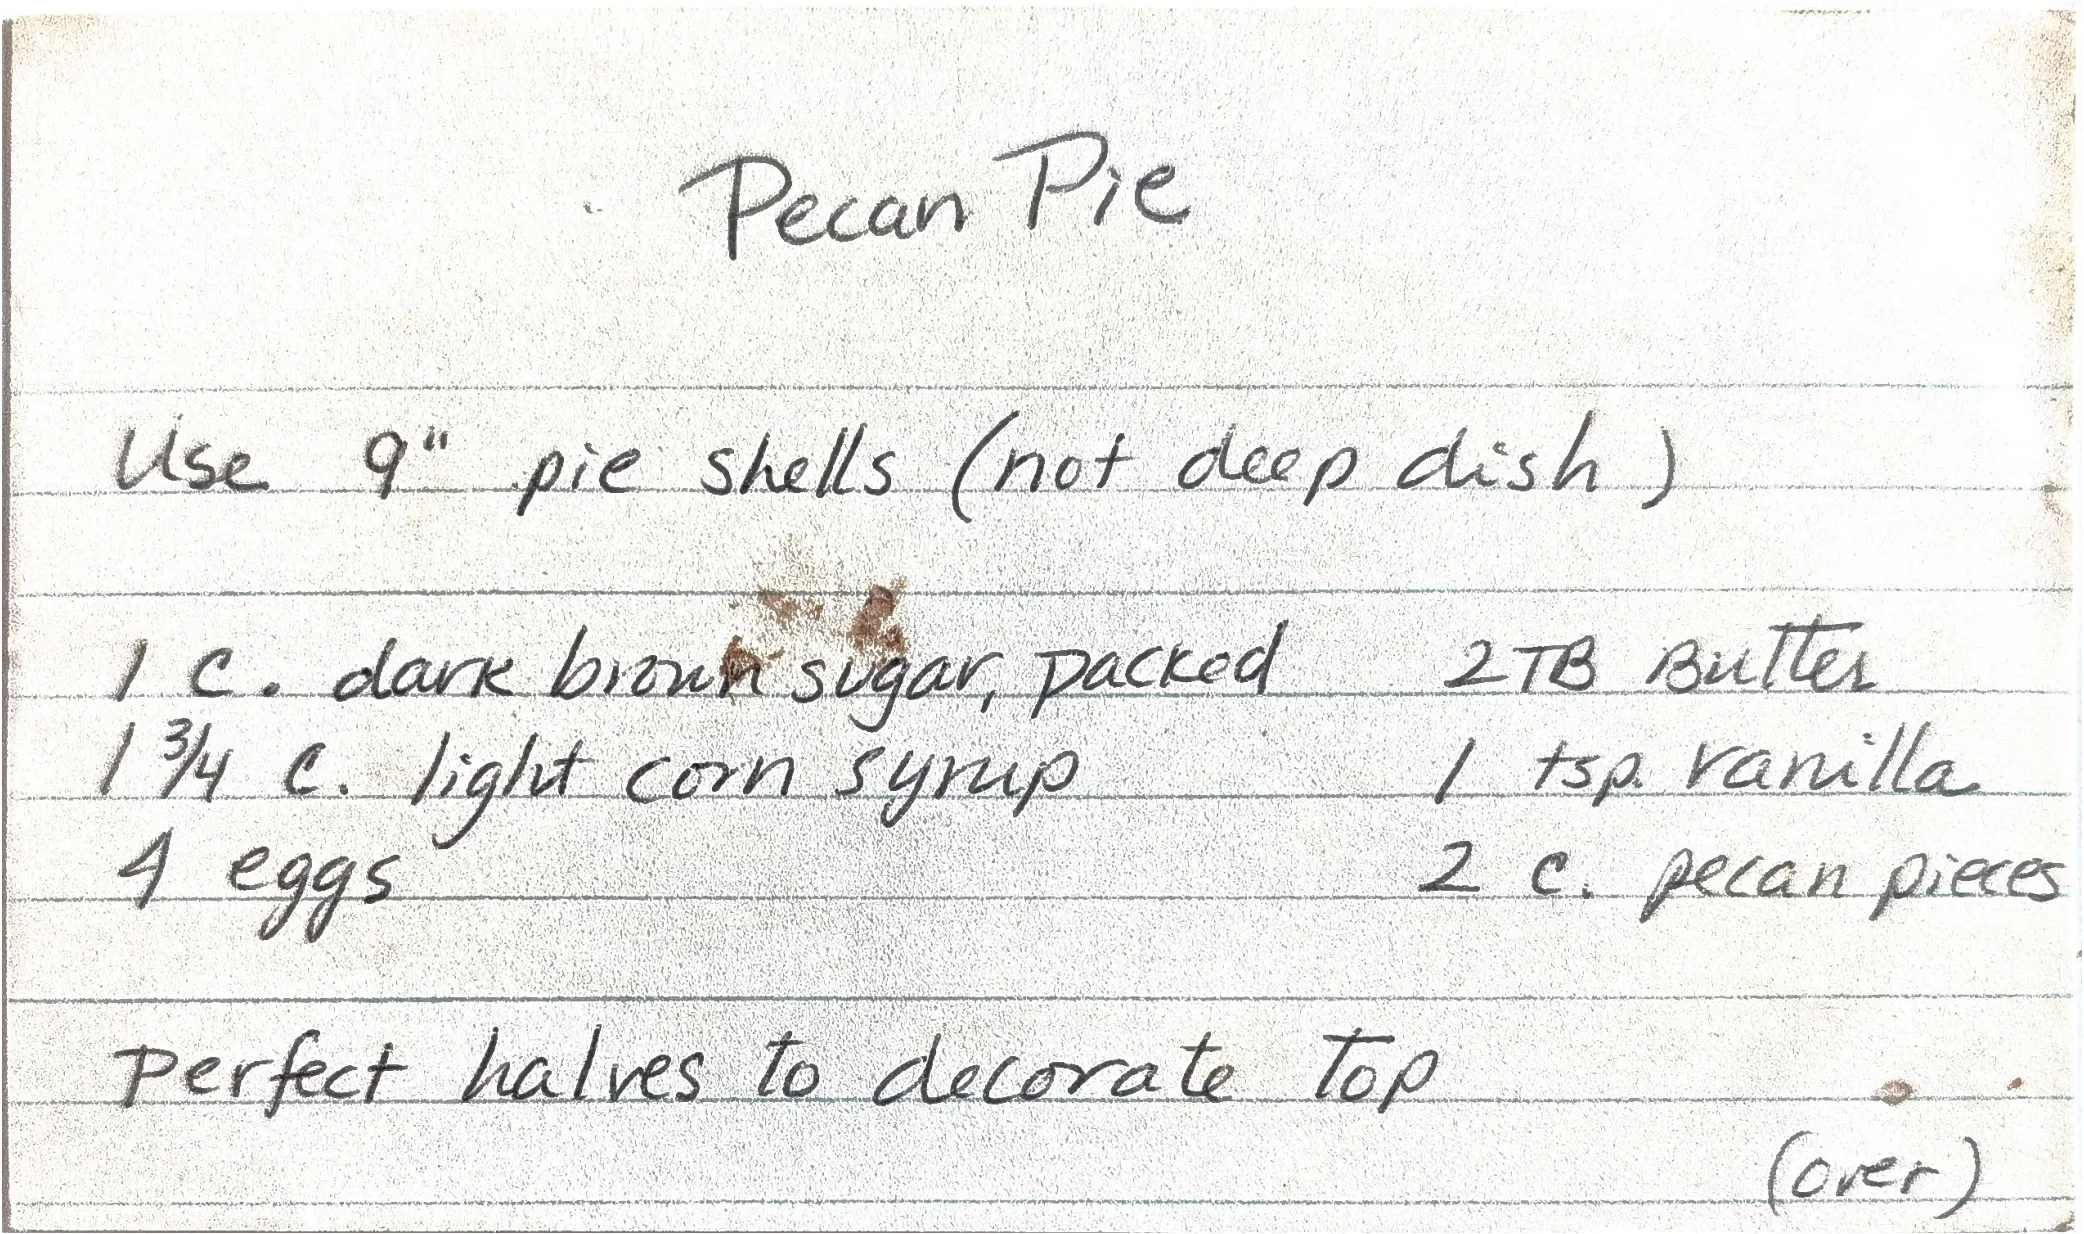 Pecan Pie
Use 9" pie shells (not deep dish)
1 c. dark brown sugar, packed 2 TB Butter
1 3/4 c. light corn syrup 1 tsp. vanilla
4 eggs 2 c. pecan pieces
Perfect halves to decorate top
(over)